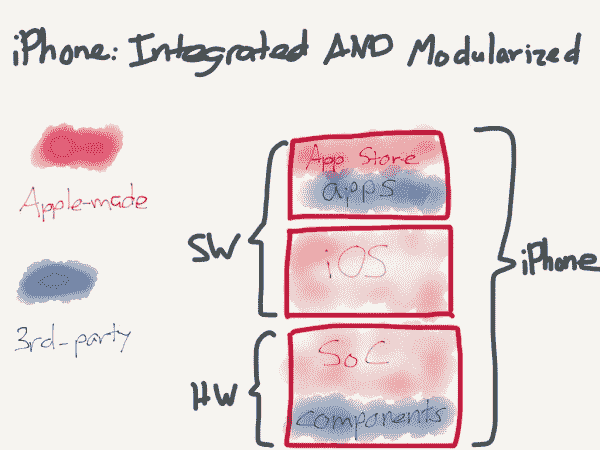 iPhone: Integrated AND Modularized
Apple-made
3rd-party
SW
App Store
apps
iOS
HW
SoC
components
iPhone